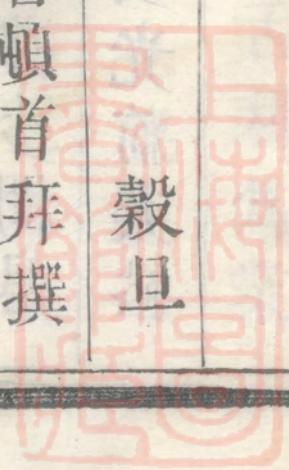 穀旦
頓首拜撰